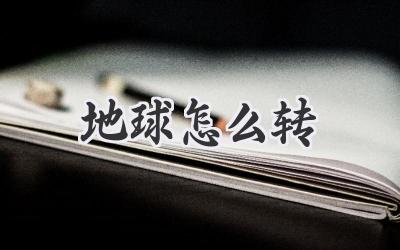 地球怎么转